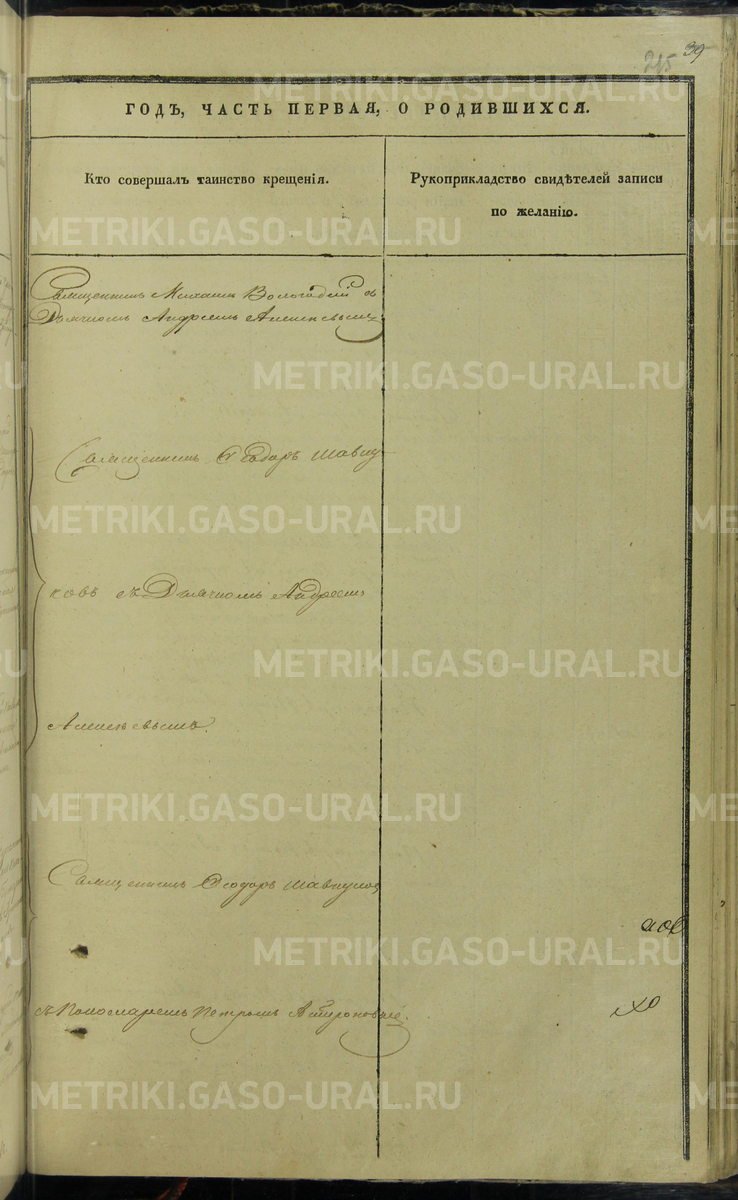 39
215
ГОДЪ, ЧАСТЬ ПЕРВАЯ, О РОДИВШИХСЯ.
Кто совершалъ таинство крещенія.
Рукоприкладство свидѣтелей записи
по желанію.
Священникъ Михаилъ Вологодскій съ
Дьячкомъ Андреемъ
Священникъ Ѳеодоръ Шавку-
ковъ съ Дьячкомъ Андреемъ
Священникъ Ѳеодоръ
съ Пономаремъ Петромъ
METRIKI.GASO-URAL.RU
METRIKI.GASO-URAL.RU
METRIKI.GASO-URAL.RU
METRIKI.GASO-URAL.RU
METRIKI.GASO-URAL.RU
METRIKI.GASO-URAL.RU
METRIKI.GASO-URAL.RU
METRIKI.GASO-URAL.RU